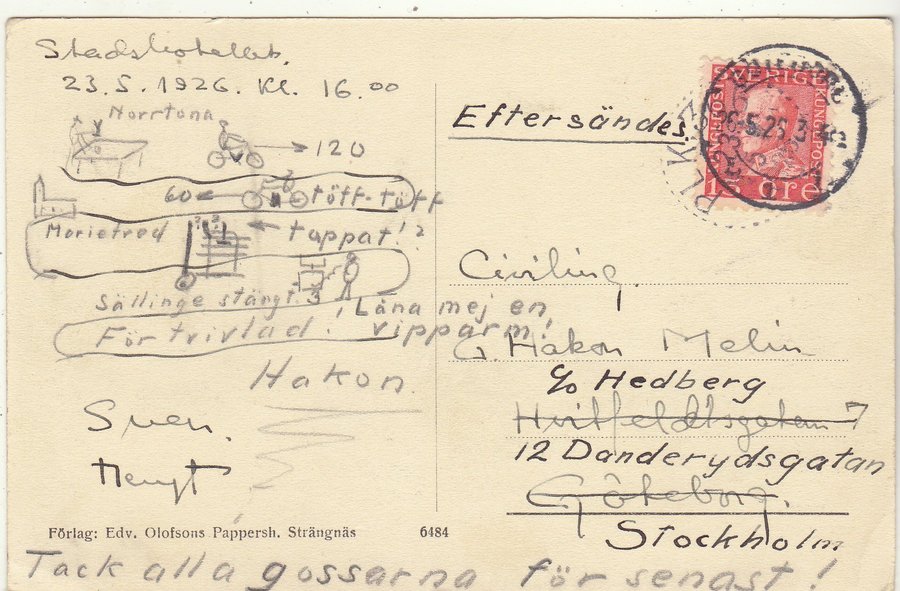 Stadshotellet.
23.5.1926. Kl. 16.00
Norrtona
→ 120
60 ← töff-töff
Mariefred
← tappat!?
Sällinge stängt.
Låna mej en
Förtvivlad. vipparm!
Hakon
Sven.
Förlag: Edv. Olofsons Pappersh. Strängnäs 6484
Tack alla gossarna för senast!
Eftersändes.
SVERIGE
15 öre
Civiling.
G. Hakon Melin
c/o Hedberg
Hvitfeldtsgatan 7
12 Danderydsgatan
Göteborg.
Stockholm